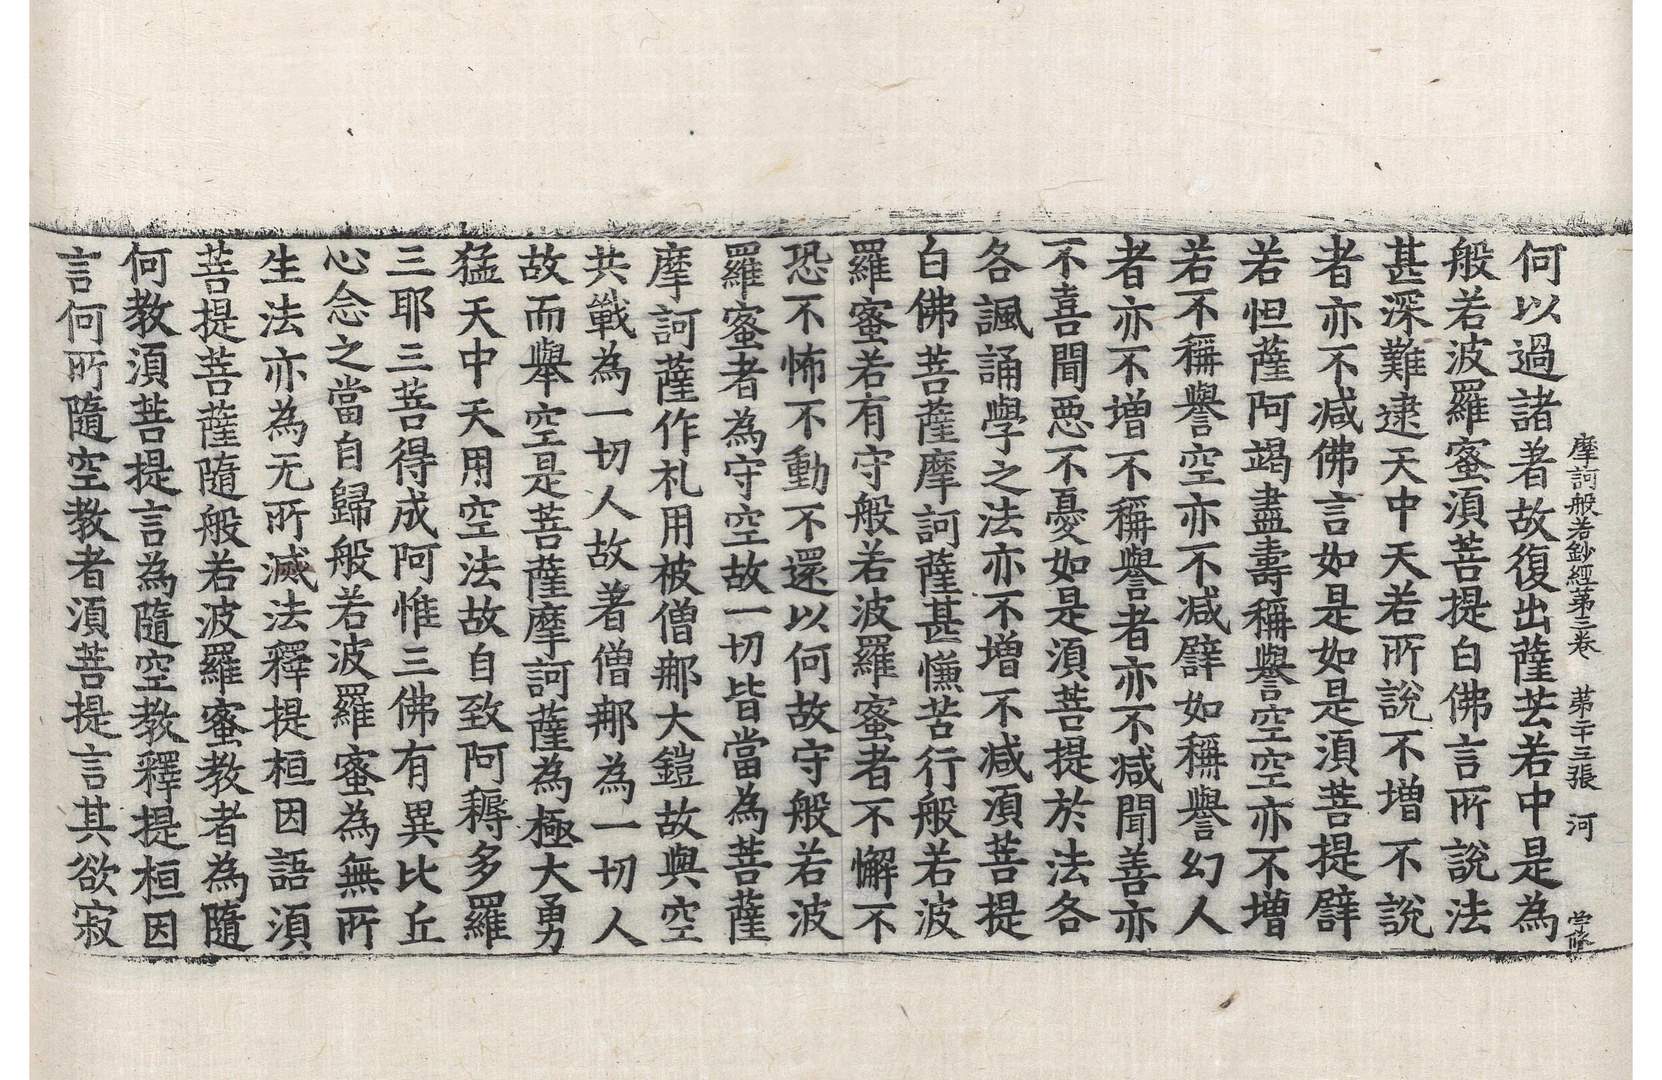 摩訶般若鈔經第三卷 第二十三張 河
何以過諸著故復出薩芸若中是為
般若波羅蜜須菩提白佛言所說法
甚深難逮天中天若所說不增不說
者亦不减佛言如是如是須菩提譬
若怛薩阿竭盡壽稱譽空空亦不增
若不稱譽空亦不减譬如稱譽幻人
者亦不增不稱譽者亦不减聞善亦
不喜聞惡不憂如是須菩提於法各
各諷誦學之法亦不增不减須菩提
白佛菩薩摩訶薩甚慊苦行般若波
羅蜜若有守般若波羅蜜者不懈不
恐不怖不動不還以何故守般若波
羅蜜者為守空故一切皆當為菩薩
摩訶薩作礼用被僧那大鎧故與空
共戰為一切人故著僧那為一切人
故而舉空是菩薩摩訶薩為極大勇
猛天中天用空法故自致阿耨多羅
三耶三菩得成阿惟三佛有異比丘
心念之當自歸般若波羅蜜為無所
生法亦為无所滅法釋提桓因語須
菩提菩薩隨般若波羅蜜教者為隨
何教須菩提言為隨空教釋提桓因
言何所隨空教者須菩提言其欲寂